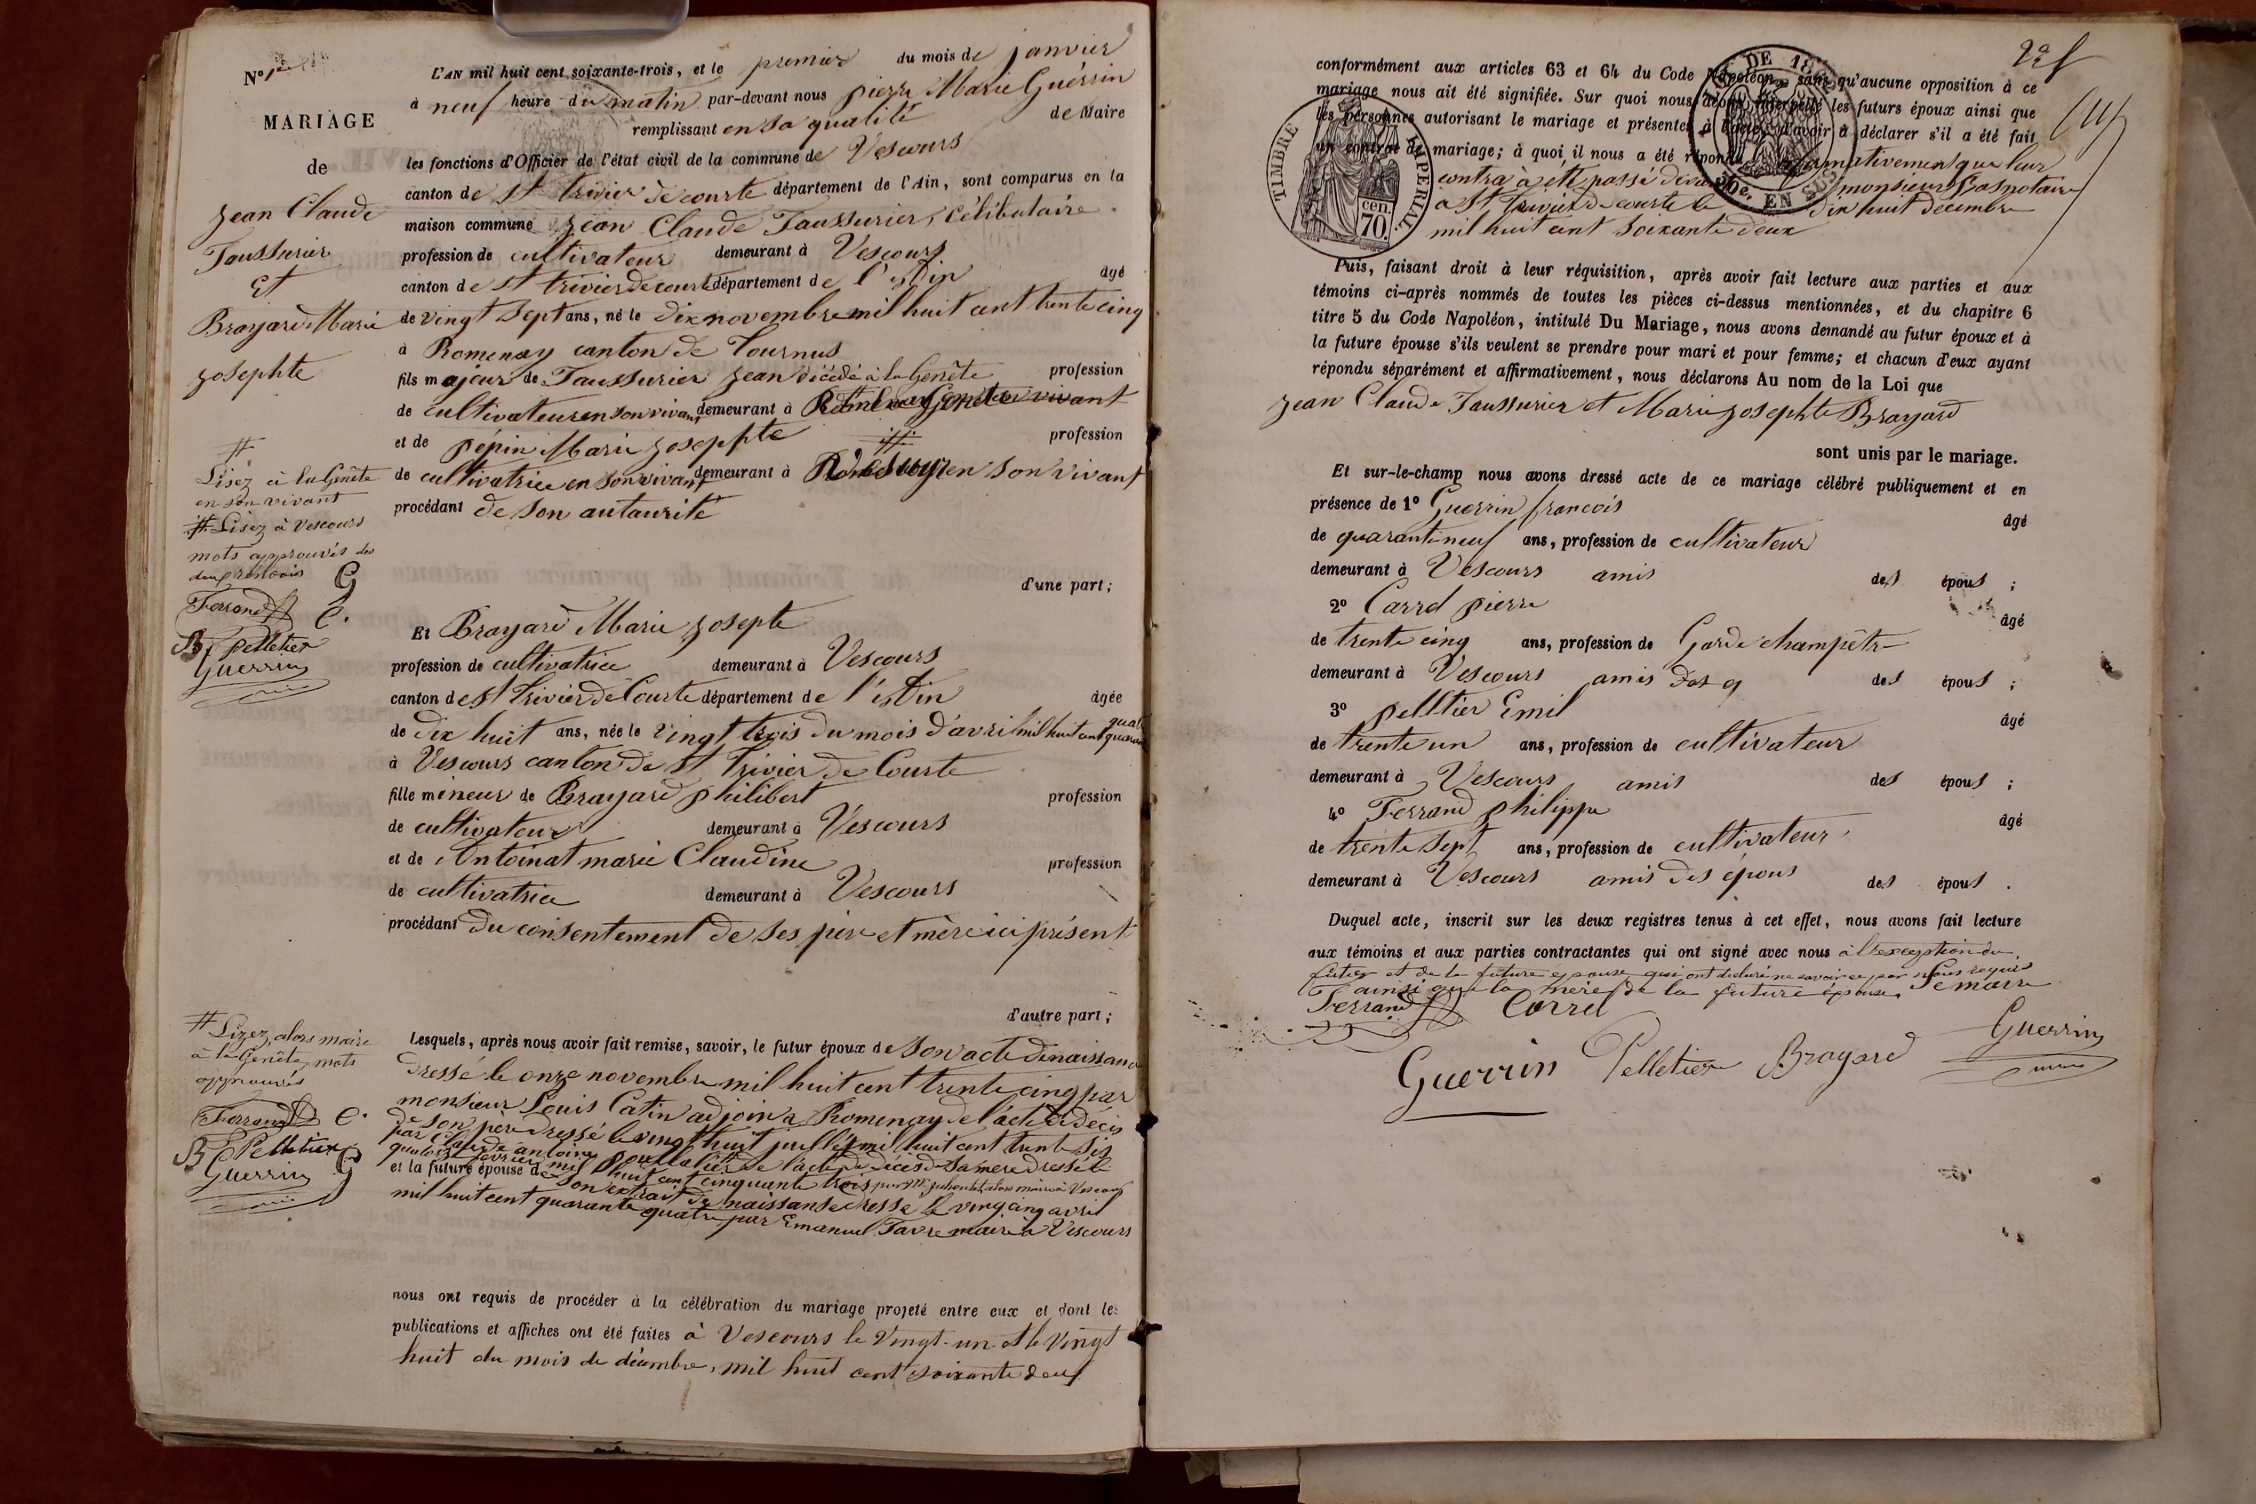 N° 1er
MARIAGE
de
Jean Claude
Taussurier
Et
Brayard Marie
Josephte
#
Lisez à la Genête
en son vivant
#. Lisez à Vescours
mots approuvés des
deux renvois G
Ferrand C.
B, pelletier
Guerrin
# Lizez, alors maire
à la Genête, mots
approuvés
Ferrand C.
B E Pelletier G
Guerrin
L'AN mil huit cent soixante-trois, et le premier du mois de janvier
à neuf heure du matin par-devant nous pierre Marie Guérrin
remplissant en sa qualité de Maire
les fonctions d'Officier de l'état civil de la commune de Vescours
canton de St trivier de courte département de l'Ain, sont comparus en la
maison commune Jean Claude Taussurier, Célibataire
profession de cultivateur demeurant à Vescours
canton de St trivier de courte département de l'Ain âgé
de vingt sept ans, né le dix novembre mil huit cent trente cinq
à Romenay canton de Tournus
fils majeur de Taussurier Jean décédé à la Genête profession
de cultivateur en son vivant demeurant à vivant
et de pépin Marie Josephte #. profession
de cultivatrice en son vivant demeurant à en son vivant
procédant de son autaurité
d'une part;
Et Brayard Marie Josepte
profession de cultivatrice demeurant à Vescours
canton de St Trivier de Courte département de l'Ain âgée
de dix huit ans, née le vingt trois du mois d'avril mil huit cent quarante quat
à Vescours canton de St Trivier de Courte
fille mineur de Brayard philibert profession
de cultivateur demeurant à Vescours
et de Antoinat marie Claudine profession
de cultivatrice demeurant à Vescours
procédant du consentement de ses père et mère ici présent
d'autre part;
Lesquels, après nous avoir fait remise, savoir, le futur époux de son acte de naissance
dressé le onze novembre mil huit cent trente cinq par
monsieur Louis Catin adjoin a Romenay de l'acte de décis
de son père dressé le vingt huit juillet mil huit cent trente six
par Claude antoine # de l'acte de décès de sa mere dressé le
quatorze fevrier mil huit cent cinquante trois par alors maire à Vescours
et la future épouse de son extrait de naissanse dressé le vingt cinq avril
mil huit cent quarante quatre par Emanuel Favre maire à Vescours
nous ont requis de procéder à la célébration du mariage projeté entre eux et dont les
publications et affiches ont été faites à Vescours le vingt-un et le vingt
huit du mois de décembre, mil huit cent soixante deux
2e f
conformément aux articles 63 et 64 du Code Napoléon, sans qu'aucune opposition à ce
mariage nous ait été signifiée. Sur quoi nous avons interpellé les futurs époux ainsi que
les personnes autorisant le mariage et présentes à l'acte, d'avoir à déclarer s'il a été fait
un contrat de mariage; à quoi il nous a été répondu affirmativement que leur
contra à été passé devant monsieur Bas notaire
a St Trivier de courte le dix huit decembre
mil huit cent soixante deux
TIMBRE IMPERIAL
70. cen.
DE 18
50c. EN SUS
Puis, faisant droit à leur réquisition, après avoir fait lecture aux parties et aux
témoins ci-après nommés de toutes les pièces ci-dessus mentionnées, et du chapitre 6
titre 5 du Code Napoléon, intitulé Du Mariage, nous avons demandé au futur époux et à
la future épouse s'ils veulent se prendre pour mari et pour femme; et chacun d'eux ayant
répondu séparément et affirmativement, nous déclarons Au nom de la Loi que
Jean Claude Taussurier et Marie Josephte Brayard
sont unis par le mariage.
Et sur-le-champ nous avons dressé acte de ce mariage célébré publiquement et en
présence de 1° Guerrin francois âgé
de quarante neuf ans, profession de cultivateur
demeurant à Vescours amis des épous ;
2° Carrel pierre âgé
de trente cinq ans, profession de Garde champêtre
demeurant à Vescours amis des épous ;
3° pelltier Emil âgé
de trente un ans, profession de cultivateur
demeurant à Vescours amis des épous ;
4° Ferrand philippe âgé
de trente sept ans, profession de cultivateur
demeurant à Vescours amis des épous des épous .
Duquel acte, inscrit sur les deux registres tenus à cet effet, nous avons fait lecture
aux témoins et aux parties contractantes qui ont signé avec nous à l'exception du
futur et de la future épouse qui ont declaré ne savoir ce par nous requis
ainsi que la mère de la future épouse. Le maire
Ferrand Correl
Guerrin
Guerrin Pelletier Brayard